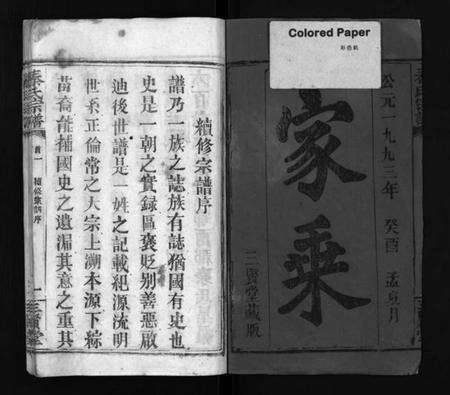 Colored Paper
彩色紙
公元一九九三年 癸酉 孟夏月
家乘
三寶堂藏版
續修宗譜序
譜乃一族之誌族有誌猶國有史也
史是一朝之實録區褒貶别善惡啟
迪後世譜是一姓之記載犯源流明
世系正倫常之大宗上溯本源下綜
苗裔能補國史之遺漏其意之重其
秦氏宗譜
首一
續修宗譜序
三寶堂